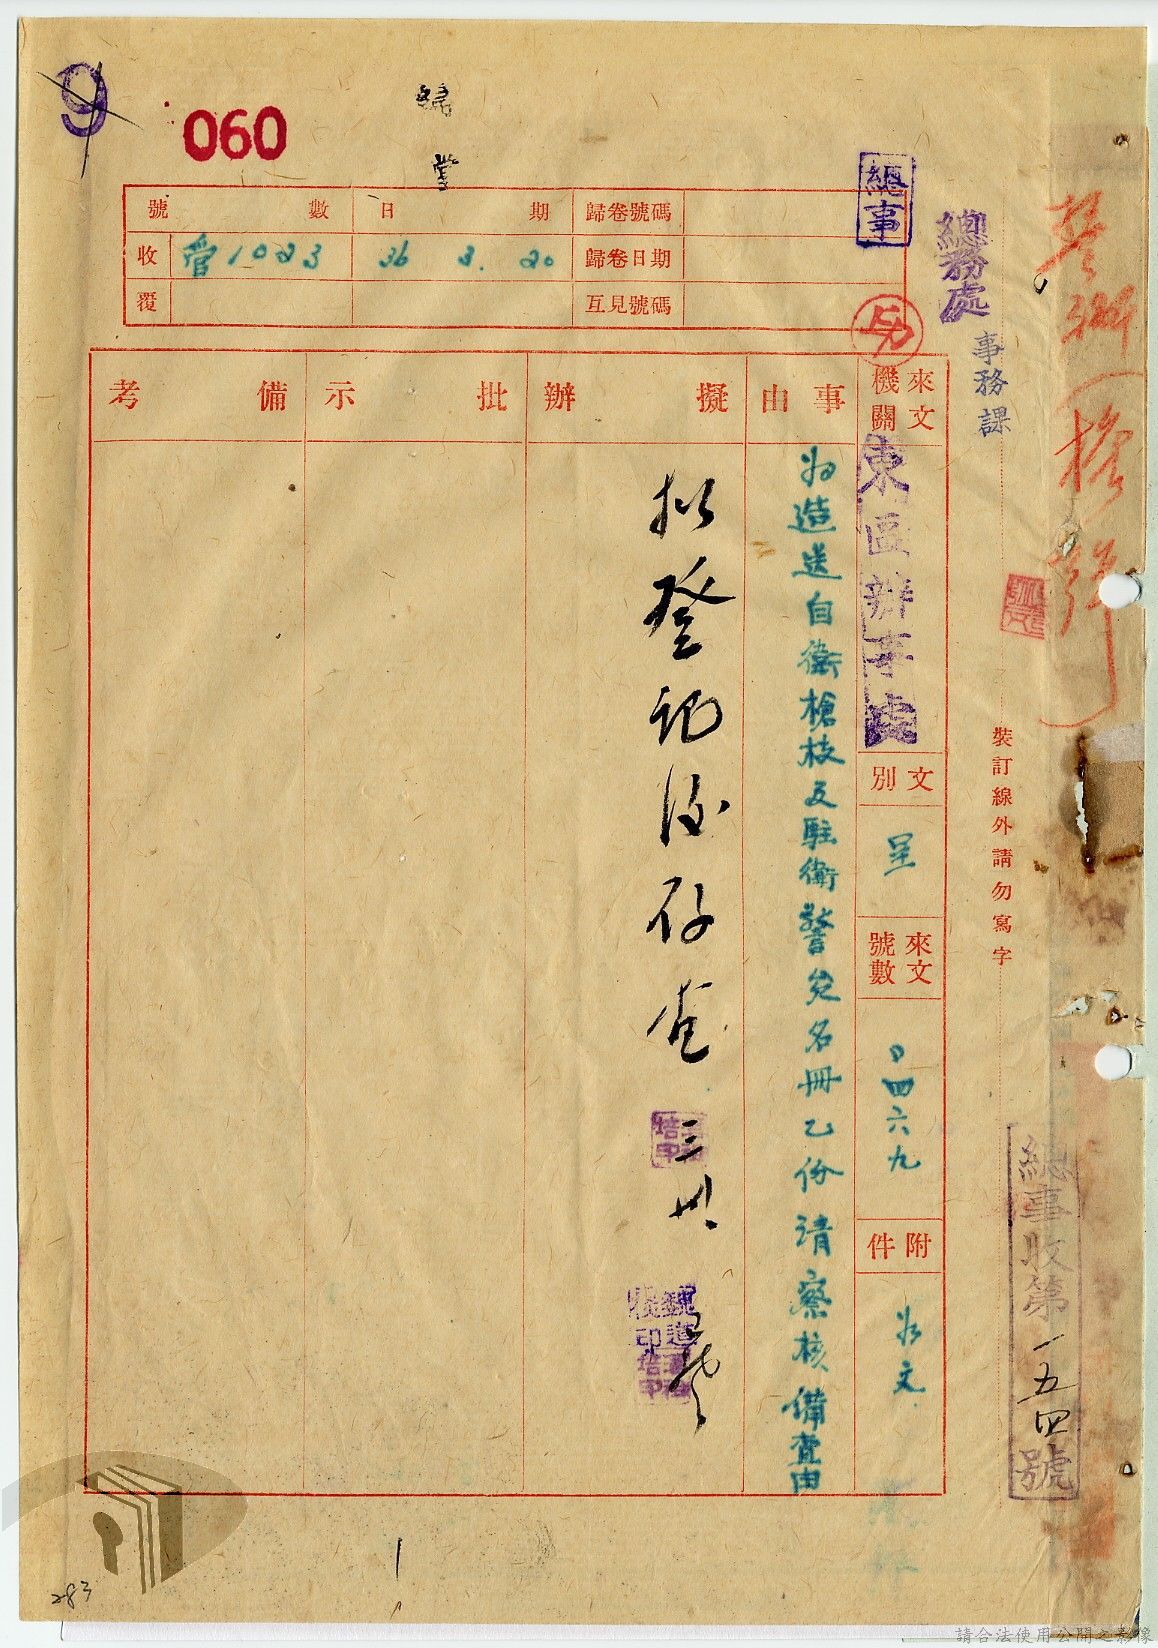 9
060
號數
日期
歸卷號碼
收
管1023
36 3. 20
歸卷日期
覆
互見號碼
總事
總務處
事務課
警衛（槍彈）
來文機關
東區辦事處
文別
呈
來文號數
0四六九
附件
如文
事由
為造送自衛槍枝及駐衛警名冊乙份請察核備查由
擬辦
拟登記後存查
三
批示
備考
裝訂線外請勿寫字
總事收第一五四號
1
283
請合法使用公開之影像